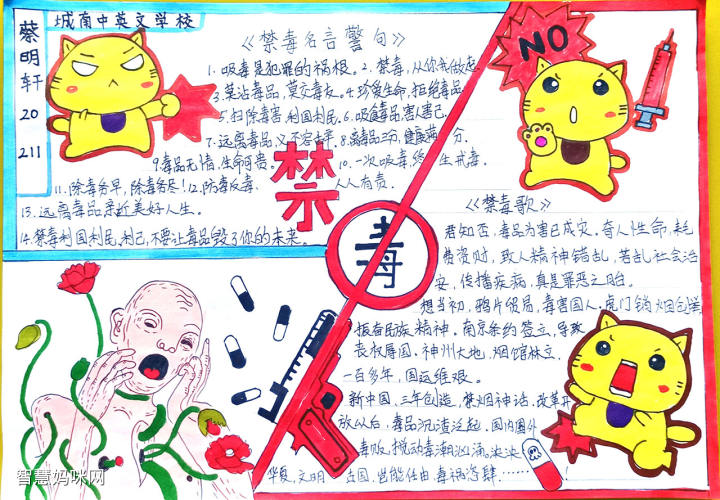 蔡明轩
20
211
城南中英文学校
《禁毒名言警句》
1.吸毒是犯罪的祸根。2.禁毒,从你我做起
3.莫沾毒品,莫交毒友。4.珍爱生命,拒绝毒品
5.扫除毒害,利国利民。6.吸食毒品,害人害己
7.远离毒品,义不容辞。8.离毒品分,健康满分。
9.毒品无情,生命可贵。10.一次吸毒,终生戒毒。
11.除毒务早,除毒务尽!12.防毒反毒、人人有责.
13.远离毒品亲近美好人生。
14.禁毒利国利民,利己,不要让毒品毁了你的未来。
禁
毒
NO
《禁毒歌》
君知否,毒品为害已成灾。夺人性命,耗
费资财,致人精神错乱,害乱社会治
安,传播疾病,真是罪恶之胎。
想当初,鸦片贸易,毒害国人。虎门销烟
振奋民族精神。南京条约签立,导致
丧权辱国。神州大地,烟馆林立.
一百多年,国运维艰。
新中国,三年创造,禁烟神话.改革开
放以后,毒品沉渣泛起.国内国外
毒贩,搅动毒潮汹涌
华夏,文明古国,岂能任由毒祸滋肆……!
智慧妈咪网